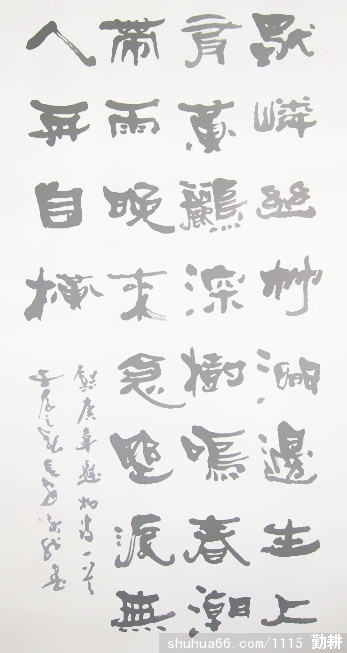 獨憐幽艸澗邊生上
有黃鸝深樹鳴春潮
帶雨晚來急埜渡無
人舟自橫
錄唐韋應物詩一首
shuhua66.com/1115 勤耕